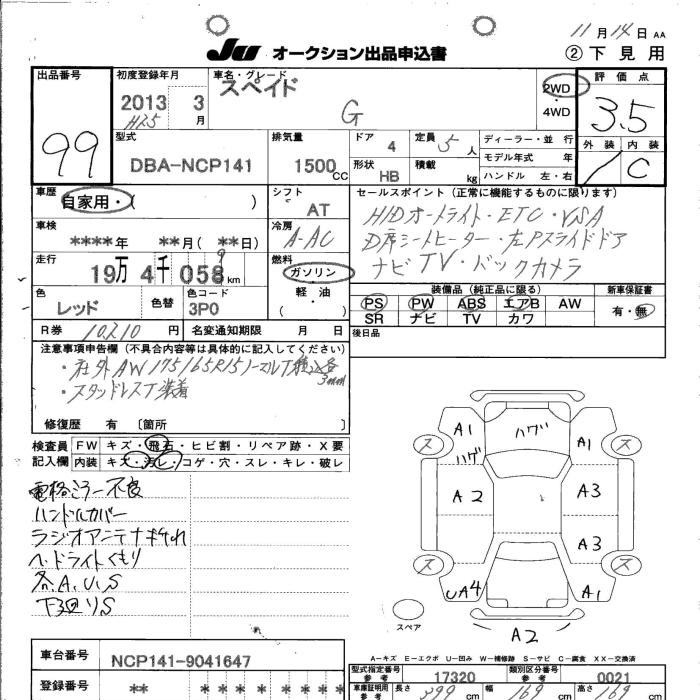 11月14日 AA
JU オークション出品申込書
② 下見用
出品番号
99
初度登録年月
2013 3
H25 月
車名・グレード
スペイド
G
2WD
・
4WD
評価点
3.5
外装 内装
C
型式
DBA-NCP141
排気量
1500 CC
ドア 4
形状 HB
定員 5 人
積載 kg
ディーラー・並行
モデル年式 年
ハンドル 左・右
車歴
自家用・( )
シフト
AT
セールスポイント(正常に機能するものに限ります)
HIDオートライト・ETC・VSA
D席シートヒーター・左Pスライドドア
ナビTV・バックカメラ
車検
****年 **月(**日)
冷房
A-AC
走行
19万 4千 058 km
9
燃料
ガソリン
軽・油
( )
色
レッド
色替
色コード
3P0
装備品(純正品に限る)
PS PW ABS エアB AW
SR ナビ TV カワ
新車保証書
有・無
R券 10210 円
名変通知期限 月 日
後日品
注意事項申告欄(不具合内容等は具体的に記入してください)
・社外AW 175/65R15 ノーマルT積込 各3mm
・スタッドレスT装着
修復歴 有 〔箇所 〕
検査員
記入欄
FW キズ・飛石・ヒビ割・リペア跡・X要
内装 キズ・汚レ・コゲ・穴・スレ・キレ・破レ
電格ミラー不良
ハンドルカバー
ラジオアンテナギれ
ヘッドライトくもり
各A.U.S
下廻りS
A1 ハゲ A1
ハゲ
ス ス
A2 A3
A3
ス ス
UA4 A1
スペア
A2
A－キズ E－エクボ U－凹み W－補修跡 S－サビ C－腐食 XX－交換済
車台番号
NCP141-9041647
登録番号
** * * * * * * *
型式指定番号
参考
17320
類別区分番号
参考
0021
車庫証明用
参考
長さ 399 cm
幅 169 cm
高さ 169 cm